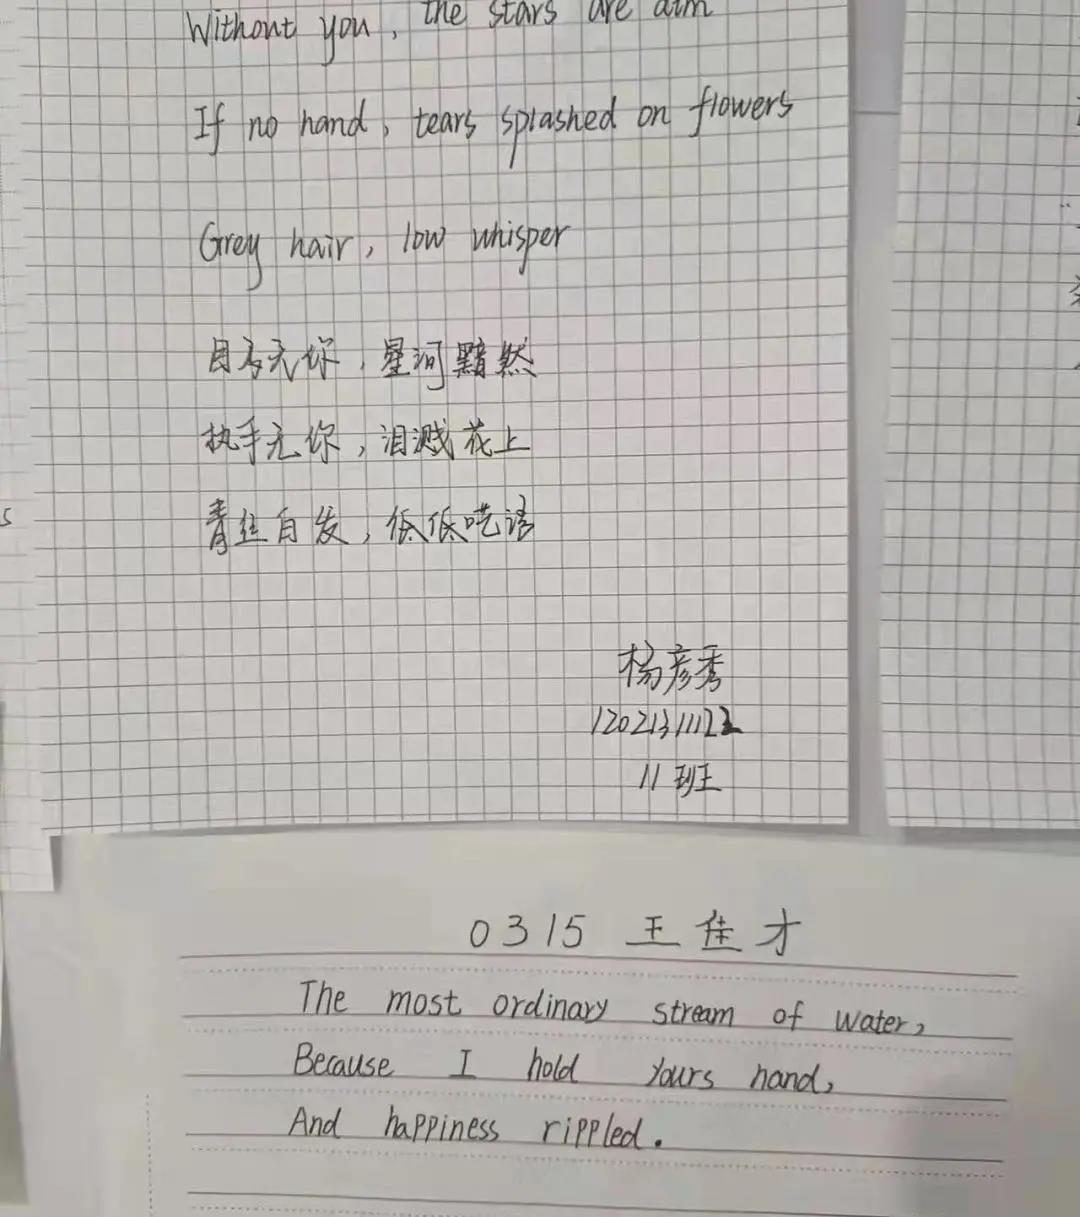 Without you, the stars are dim
If no hand, tears splashed on flowers
Grey hair, low whisper
目无你，星河黯然
执手无你，泪溅花上
青丝白发，低低呓语
杨彦秀
12021311122
11班
0315 王佳才
The most ordinary stream of water,
Because I hold yours hand,
And happiness rippled.